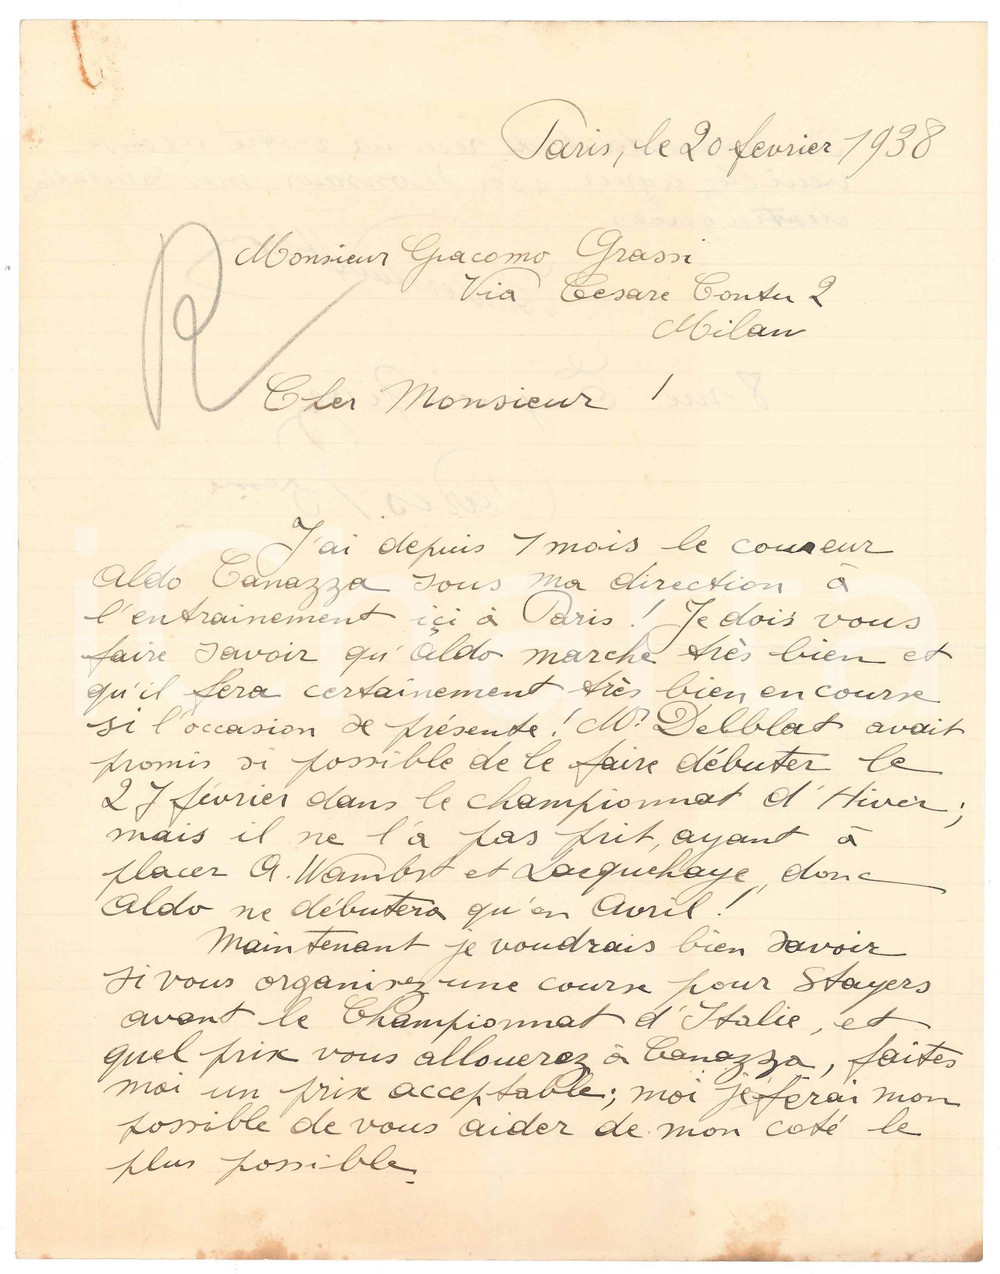 Paris, le 20 fevrier 1938
R
Monsieur Giacomo Grassi
Via Cesare Contu 2
Milan
Cher Monsieur !
J'ai depuis 1 mois le coureur
Aldo Canazza sous ma direction à
l'entrainement ici à Paris ! Je dois vous
faire savoir qu'Aldo marche très bien et
qu'il fera certainement très bien en course
si l'occasion se présente ! Mr Delblat avait
promis si possible de le faire débuter le
27 février dans le championnat d'Hiver ;
mais il ne l'a pas prit, ayant à
placer A. Wambst et Lacquehaye, donc
Aldo ne débutera qu'en Avril !
Maintenant je voudrais bien savoir
si vous organisez une course pour Stayers
avant le Championnat d'Italie, et
quel prix vous allouerez à Canazza, faites
moi un prix acceptable ; moi je ferai mon
possible de vous aider de mon coté le
plus possible.